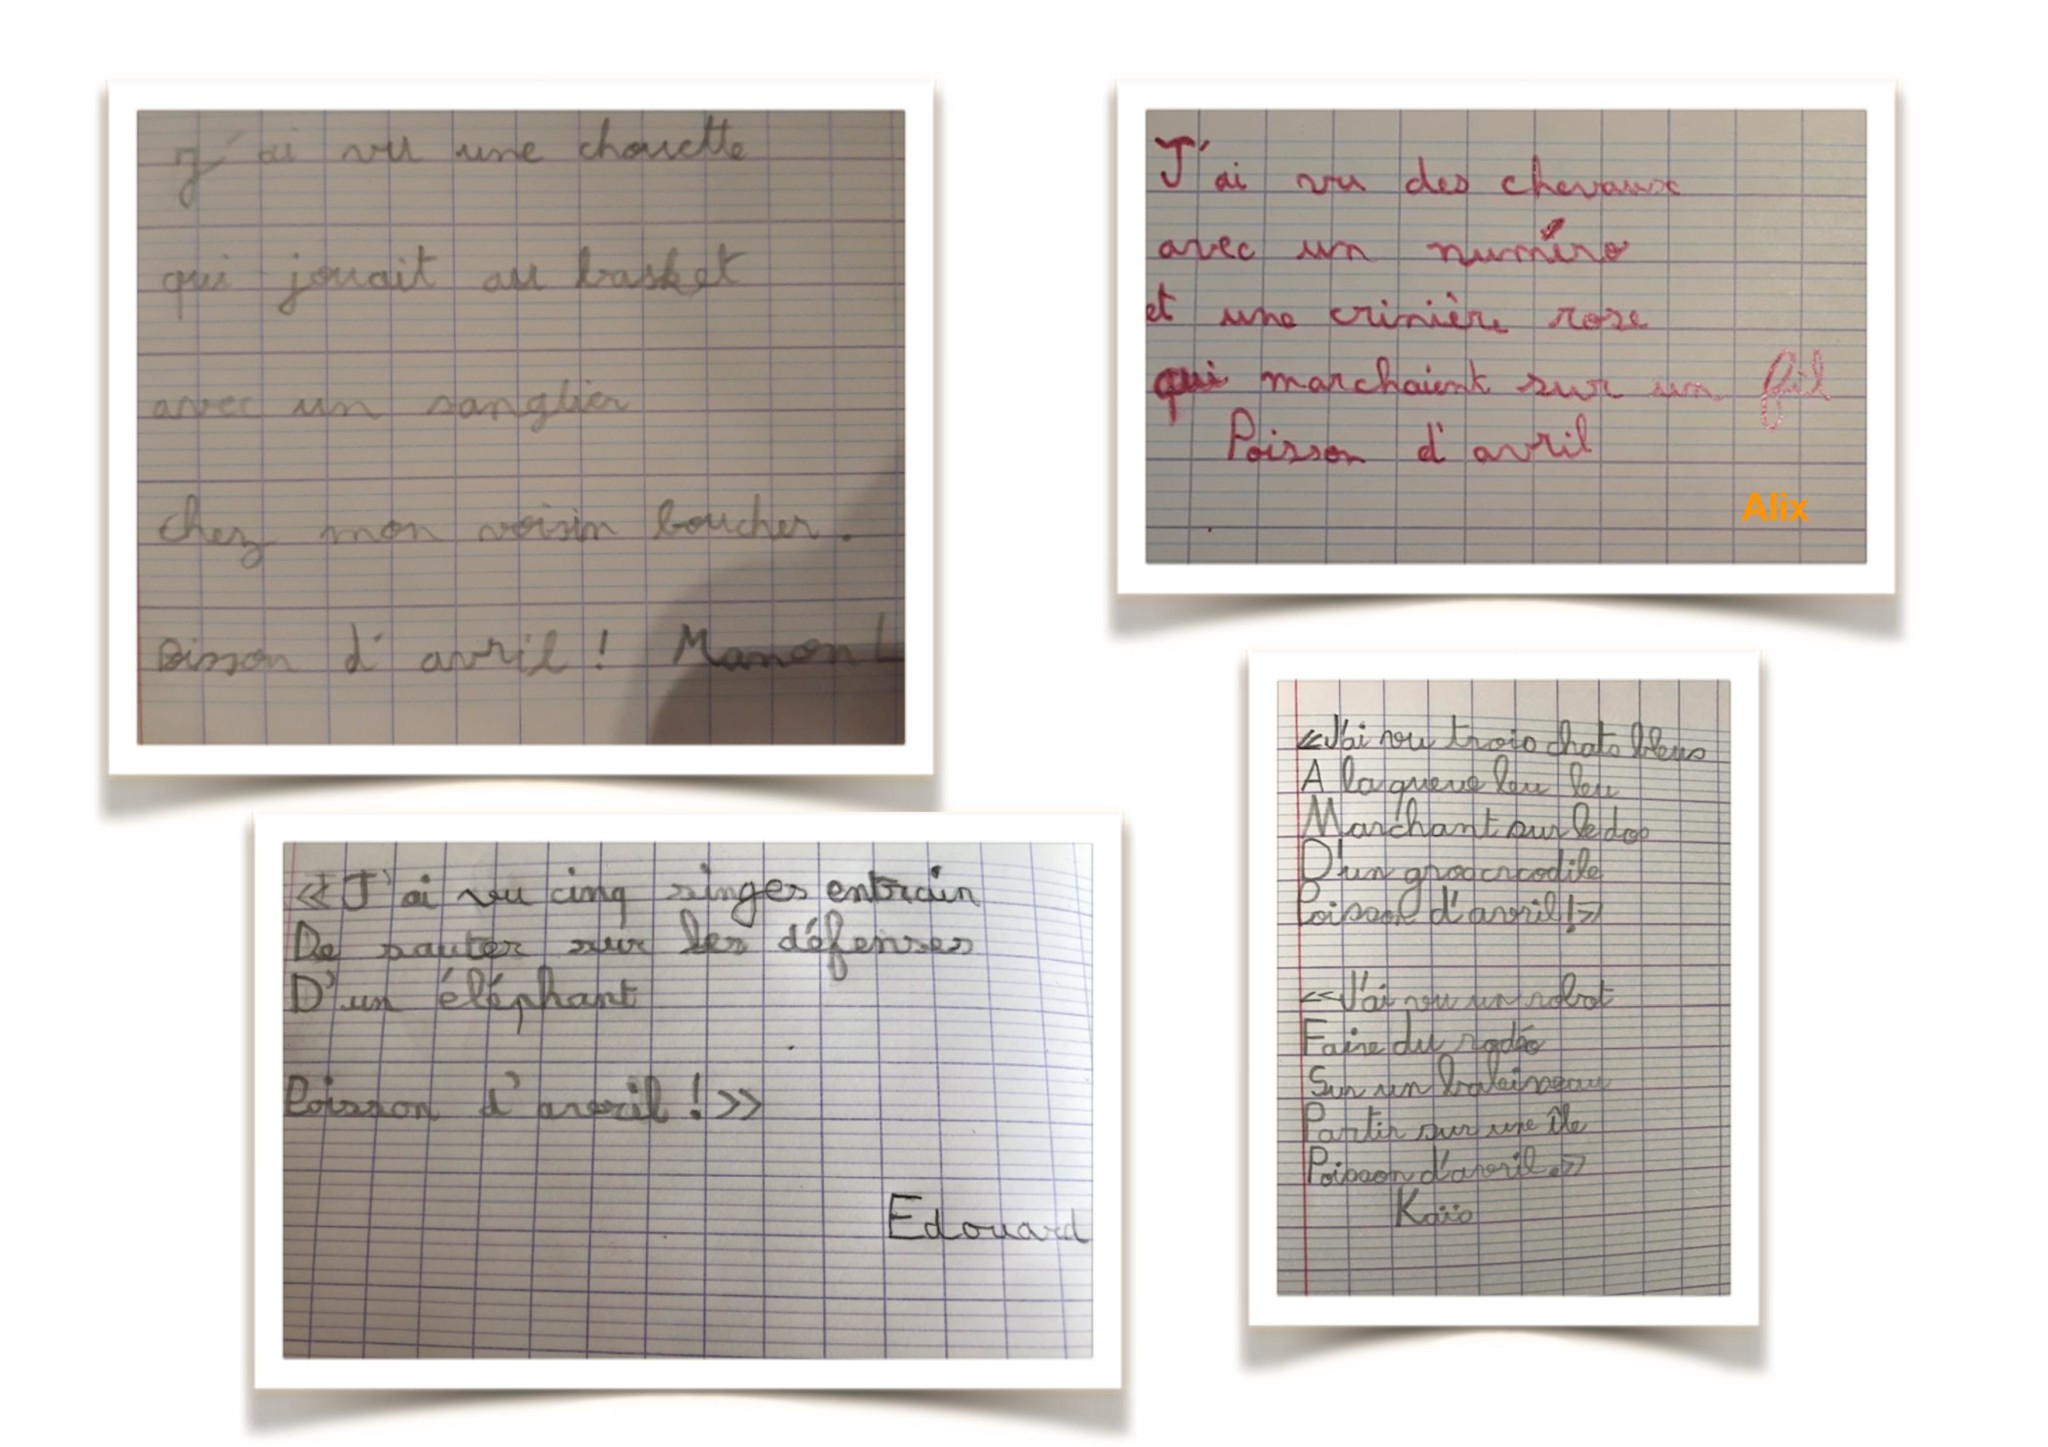 J'ai vu une chouette
qui jouait au basket
avec un sanglier
chez mon voisin boucher.
oisson d'avril ! Manon L
J'ai vu des chevaux
avec un numéro
et une crinière rose
qui marchaient sur un fil
Poisson d'avril
Alix
<<J'ai vu cinq singes entrain
De sauter sur les défenses
D'un éléphant
Poisson d'avril !>>
Edouard
<<J'ai vu trois chats bleus
A la queue leu leu
Marchant sur le dos
D'un gros crcodile
Poisson d'avril !>>
<<J'ai vu un robot
Faire du rodéo
Sur un baleineau
Partir sur une île
Poisson d'avril.>>
Kaïs